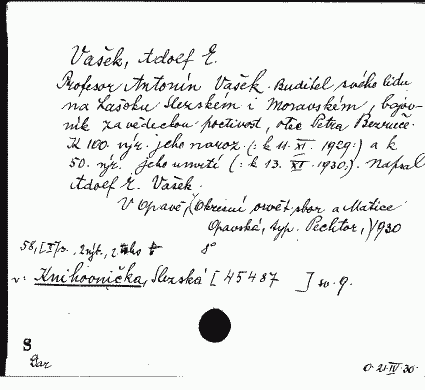 Vašek, Adolf E.
Profesor Antonín Vašek. Buditel svého lidu
na Lašsku Slezském i Moravském, bojov-
ník za vědeckou poctivost, otec Petra Bezruče.
K 100. výr. jeho naroz. (: k 11. XI. 1929:) a k
50. výr. jeho úmrtí (: k 13. XI. 1930:). Napsal
Adolf E. Vašek.
V Opavě, (Okresní osvět. sbor a Matice
Opavská, typ. Pechtor,) 1930
58, [I] s., 2 8°
v: Knihovnička, Slezská [45487 ] sv. 9.
S
Dar
0. 21-IV 30.